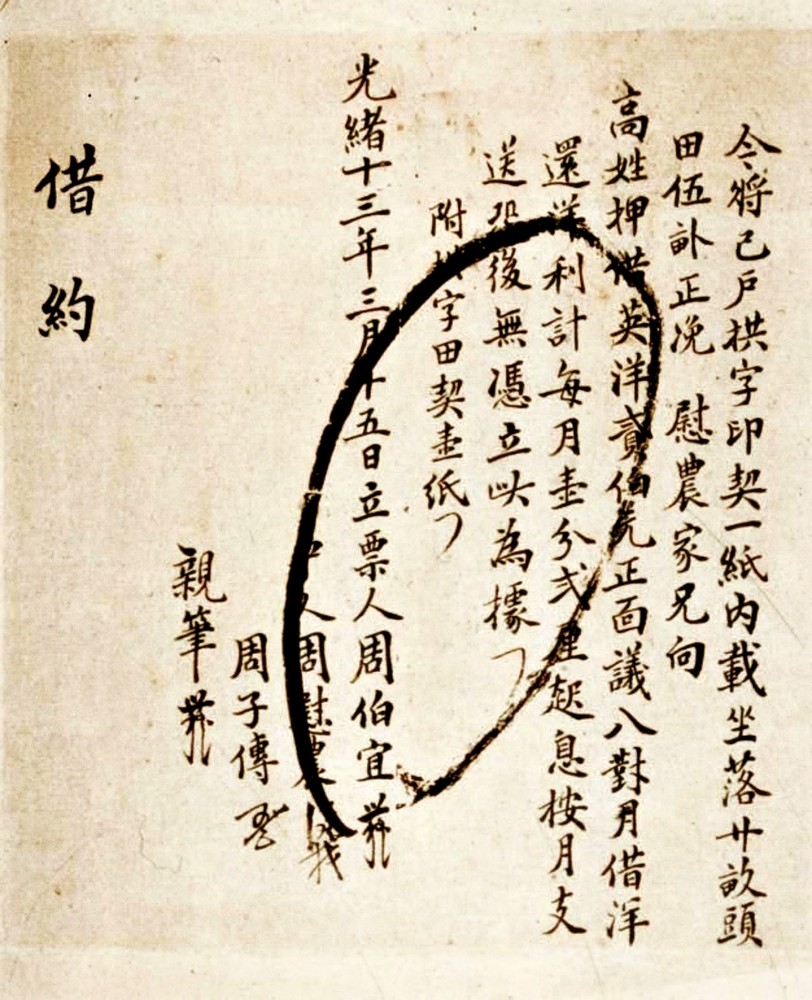 今將己戶拱字印契一紙內載坐落廿畝頭
田伍畝正浼 慰農家兄向
高姓押借英洋貳佰元正面議八對月借洋
還洋利計每月壹分弍厘起息按月支
送恐後無憑立此為據
附拱字田契壹紙
光緒十三年三月十五日立票人周伯宜
中人周慰農
周子傳
親筆
借約